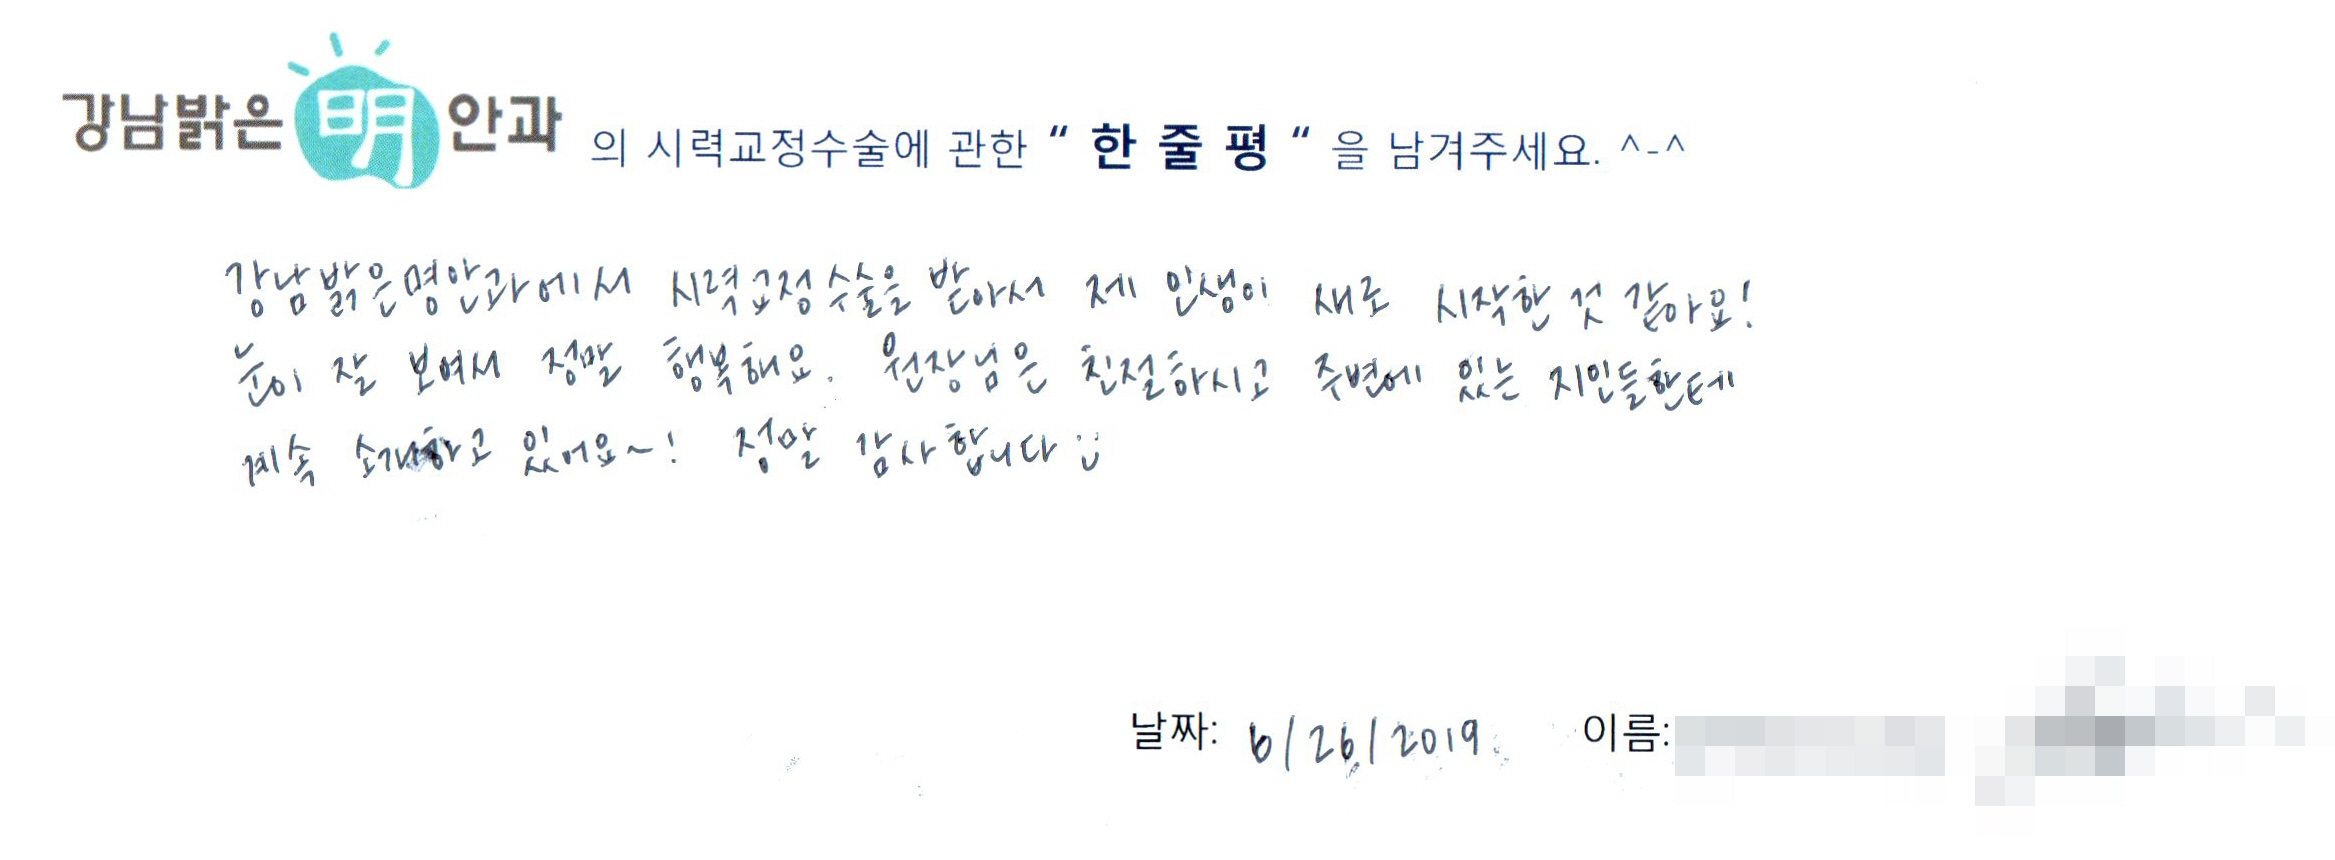 강남밝은 明 안과 의 시력교정수술에 관한 “ 한 줄 평 “ 을 남겨주세요. ^-^
강남밝은명안과에서 시력교정수술을 받아서 제 인생이 새로 시작한 것 같아요!
눈이 잘 보여서 정말 행복해요. 원장님은 친절하시고 주변에 있는 지인들한테
계속 소개하고 있어요~! 정말 감사합니다 :)
날짜: 6/26/2019 이름: